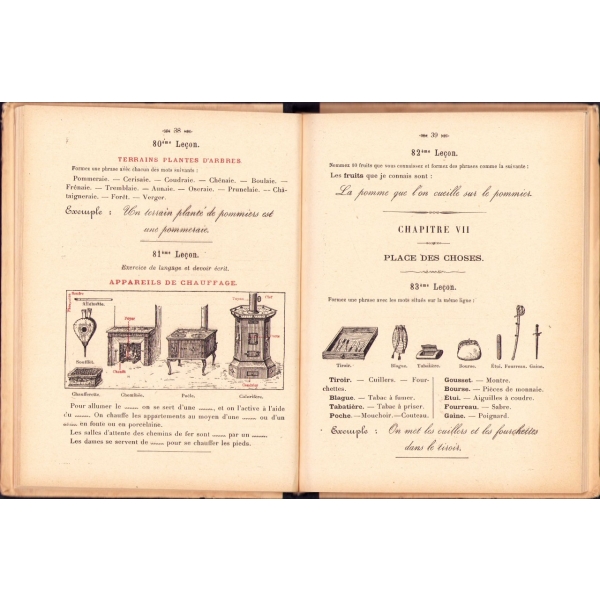 38
80ème Leçon.
TERRAINS PLANTES D'ARBRES.
Formez une phrase avec chacun des mots suivants :
Pommeraie. — Cerisaie. — Coudraie. — Chênaie. — Boulaie. —
Frênaie. — Tremblaie. — Aunaie. — Oseraie. — Prunelaie. — Châ-
taigneraie. — Forêt. — Verger.
Exemple : Un terrain planté de pommiers est
une pommeraie.
81ème Leçon.
Exercice de langage et devoir écrit.
APPAREILS DE CHAUFFAGE.
Allumette.
Soufflet.
Chaufferette. Cheminée. Poele. Calorifère.
Pour allumer le ........ on se sert d'une ........, et on l'active à l'aide
d'u ........ On chauffe les appartements au moyen d'une ........ ou d'un
........ en fonte ou en porcelaine.
Les salles d'attente des chemins de fer sont ........ par un ........
Les dames se servent de ........ pour se chauffer les pieds.
39
82ème Leçon.
Nommez 10 fruits que vous connaissez et formez des phrases comme la suivante :
Les fruits que je connais sont :
La pomme que l'on cueille sur le pommier.
CHAPITRE VII
PLACE DES CHOSES.
83ème Leçon.
Formez une phrase avec les mots situés sur la même ligne :
Tiroir. Blague. Tabatière. Bourse. Etui. Fourreau. Gaine.
Tiroir. — Cuillers. — Four-
chettes.
Blague. — Tabac à fumer.
Tabatière. — Tabac à priser.
Poche. — Mouchoir. — Couteau.
Gousset. — Montre.
Bourse. — Pièces de monnaie.
Etui. — Aiguilles à coudre.
Fourreau. — Sabre.
Gaine. — Poignard.
Exemple : On met les cuillers et les fourchettes
dans le tiroir.